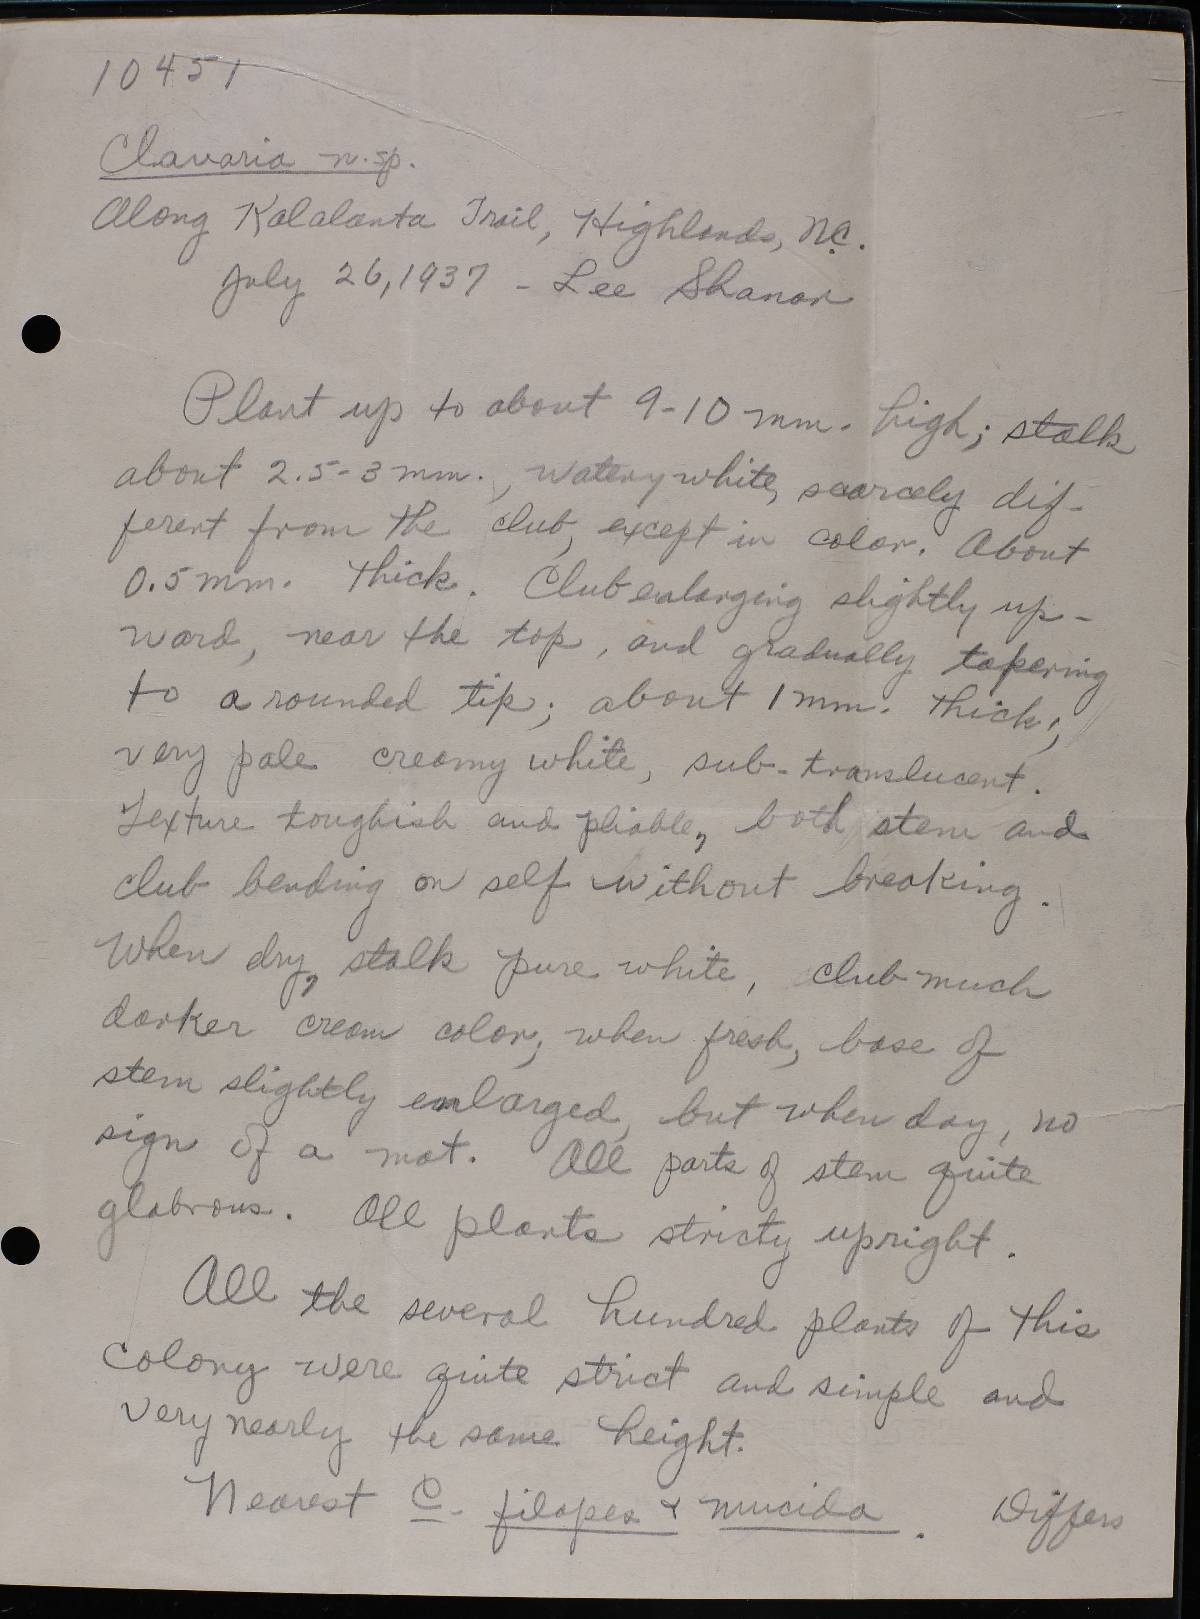 10451
Clavaria n.sp.
Along Kalalanta Trail, Highlands, N.C.
July 26, 1937 - Lee Shanor
Plant up to about 9-10 mm. high; stalk
about 2.5-3 mm., watery white, scarcely dif-
ferent from the club, except in color. About
0.5 mm. thick. Club enlarging slightly up-
ward, near the top, and gradually tapering
to a rounded tip; about 1 mm. thick;
very pale creamy white, sub-translucent.
Texture toughish and pliable, both stem and
club bending on self without breaking.
When dry, stalk pure white, club much
darker cream color; when fresh, base of
stem slightly enlarged, but when day, no
sign of a mat. All parts of stem quite
glabrous. All plants stricty upright.
All the several hundred plants of this
colony were quite strict and simple and
very nearly the same height.
Nearest C. filopes & mucida. Differs